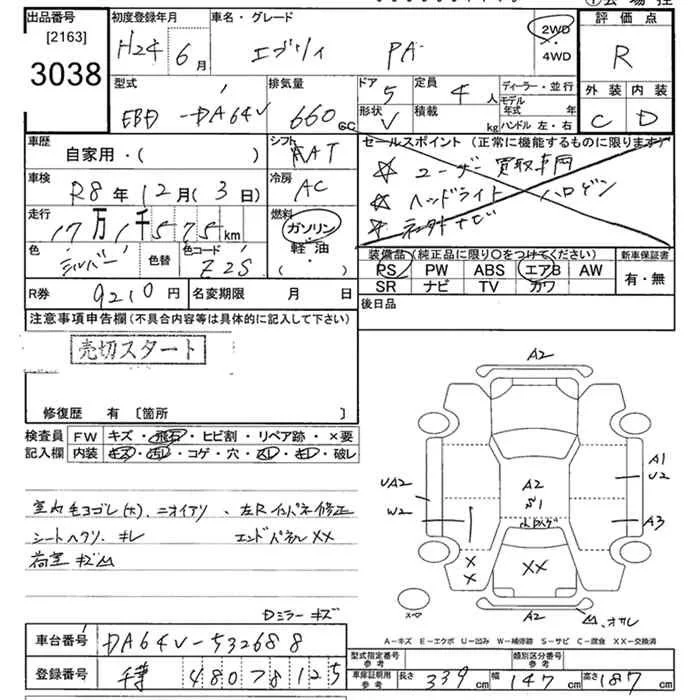 出品番号 初度登録年月 車名・グレード 評価点
[2163]
3038 H24年 6月 エブリィ PA 2WD ・ 4WD R
型式 排気量 ドア 5 定員 4人 ディーラー・並行 外装 内装
EBD -DA64V 660cc 形状 V 積載 kg モデル年式 年 C D
ハンドル 左・右
車歴 シフト セールスポイント(正常に機能するものに限ります)
自家用・( ) FAT ☆ ユーザー買取車両
車検 冷房 ☆ ヘッドライト ハロゲン
R8年12月(3日) AC
走行 燃料
17万1千575km ガソリン・軽油
色 シルバー 色替 色コード Z2S ( ・ )
装備品(純正品に限り○をつけてください) 新車保証書
PS PW ABS エアB AW 有・無
SR ナビ TV カワ
R券 9210円 名変期限 月 日 後日品
注意事項申告欄(不具合内容等は具体的に記入して下さい)
売切スタート
修復歴 有〔箇所 〕
検査員 FW キズ・飛石・ヒビ割・リペア跡・×要
記入欄 内装 キズ・汚レ・コゲ・穴・スレ・キレ・破レ
室内毛ヨゴレ(大)、ニオイアリ、左Rインパネ修正
シートヘタリ・キレ エンドパネルXX
荷室 キズ凹
Dミラーキズ
A2
UA2 A2 A1
S1 U2
W2 A3
X XX
X
A2 凹、オサレ
A-キズ E-エクボ U-凹み W-補修跡 S-サビ C-腐食 XX-交換済
車台番号 DA64V-532688 型式指定番号 参考 類別区分番号 参考
登録番号 480 ア8125 車庫証明用 参考 長さ 339cm 幅 147cm 高さ 187cm